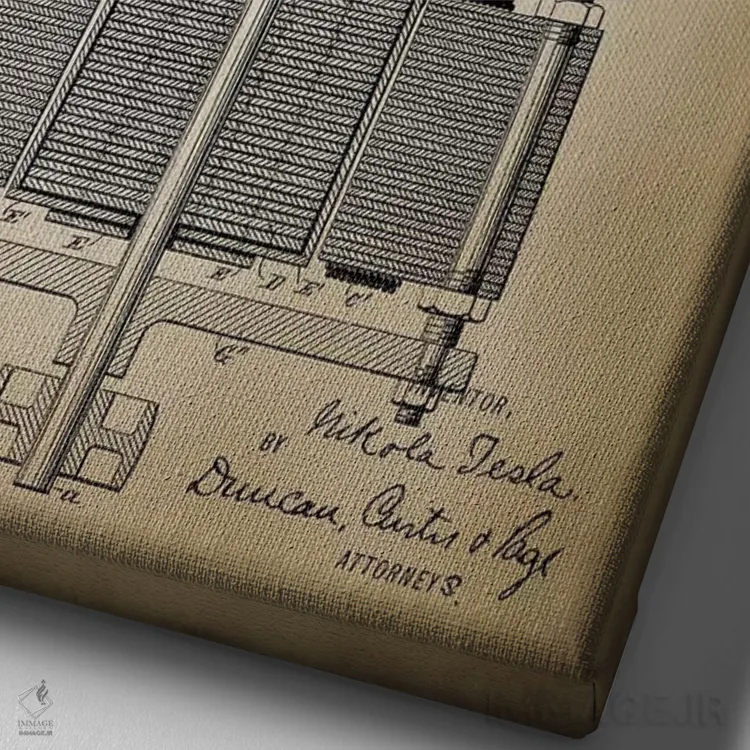 E'
E'
E'
D
E'
C'
G''
a
NTOR,
Nikola Tesla.
BY
Duncan, Curtis & Page
ATTORNEYS.
IMMAGE
IMMAGE.IR
IMMAGE.IR